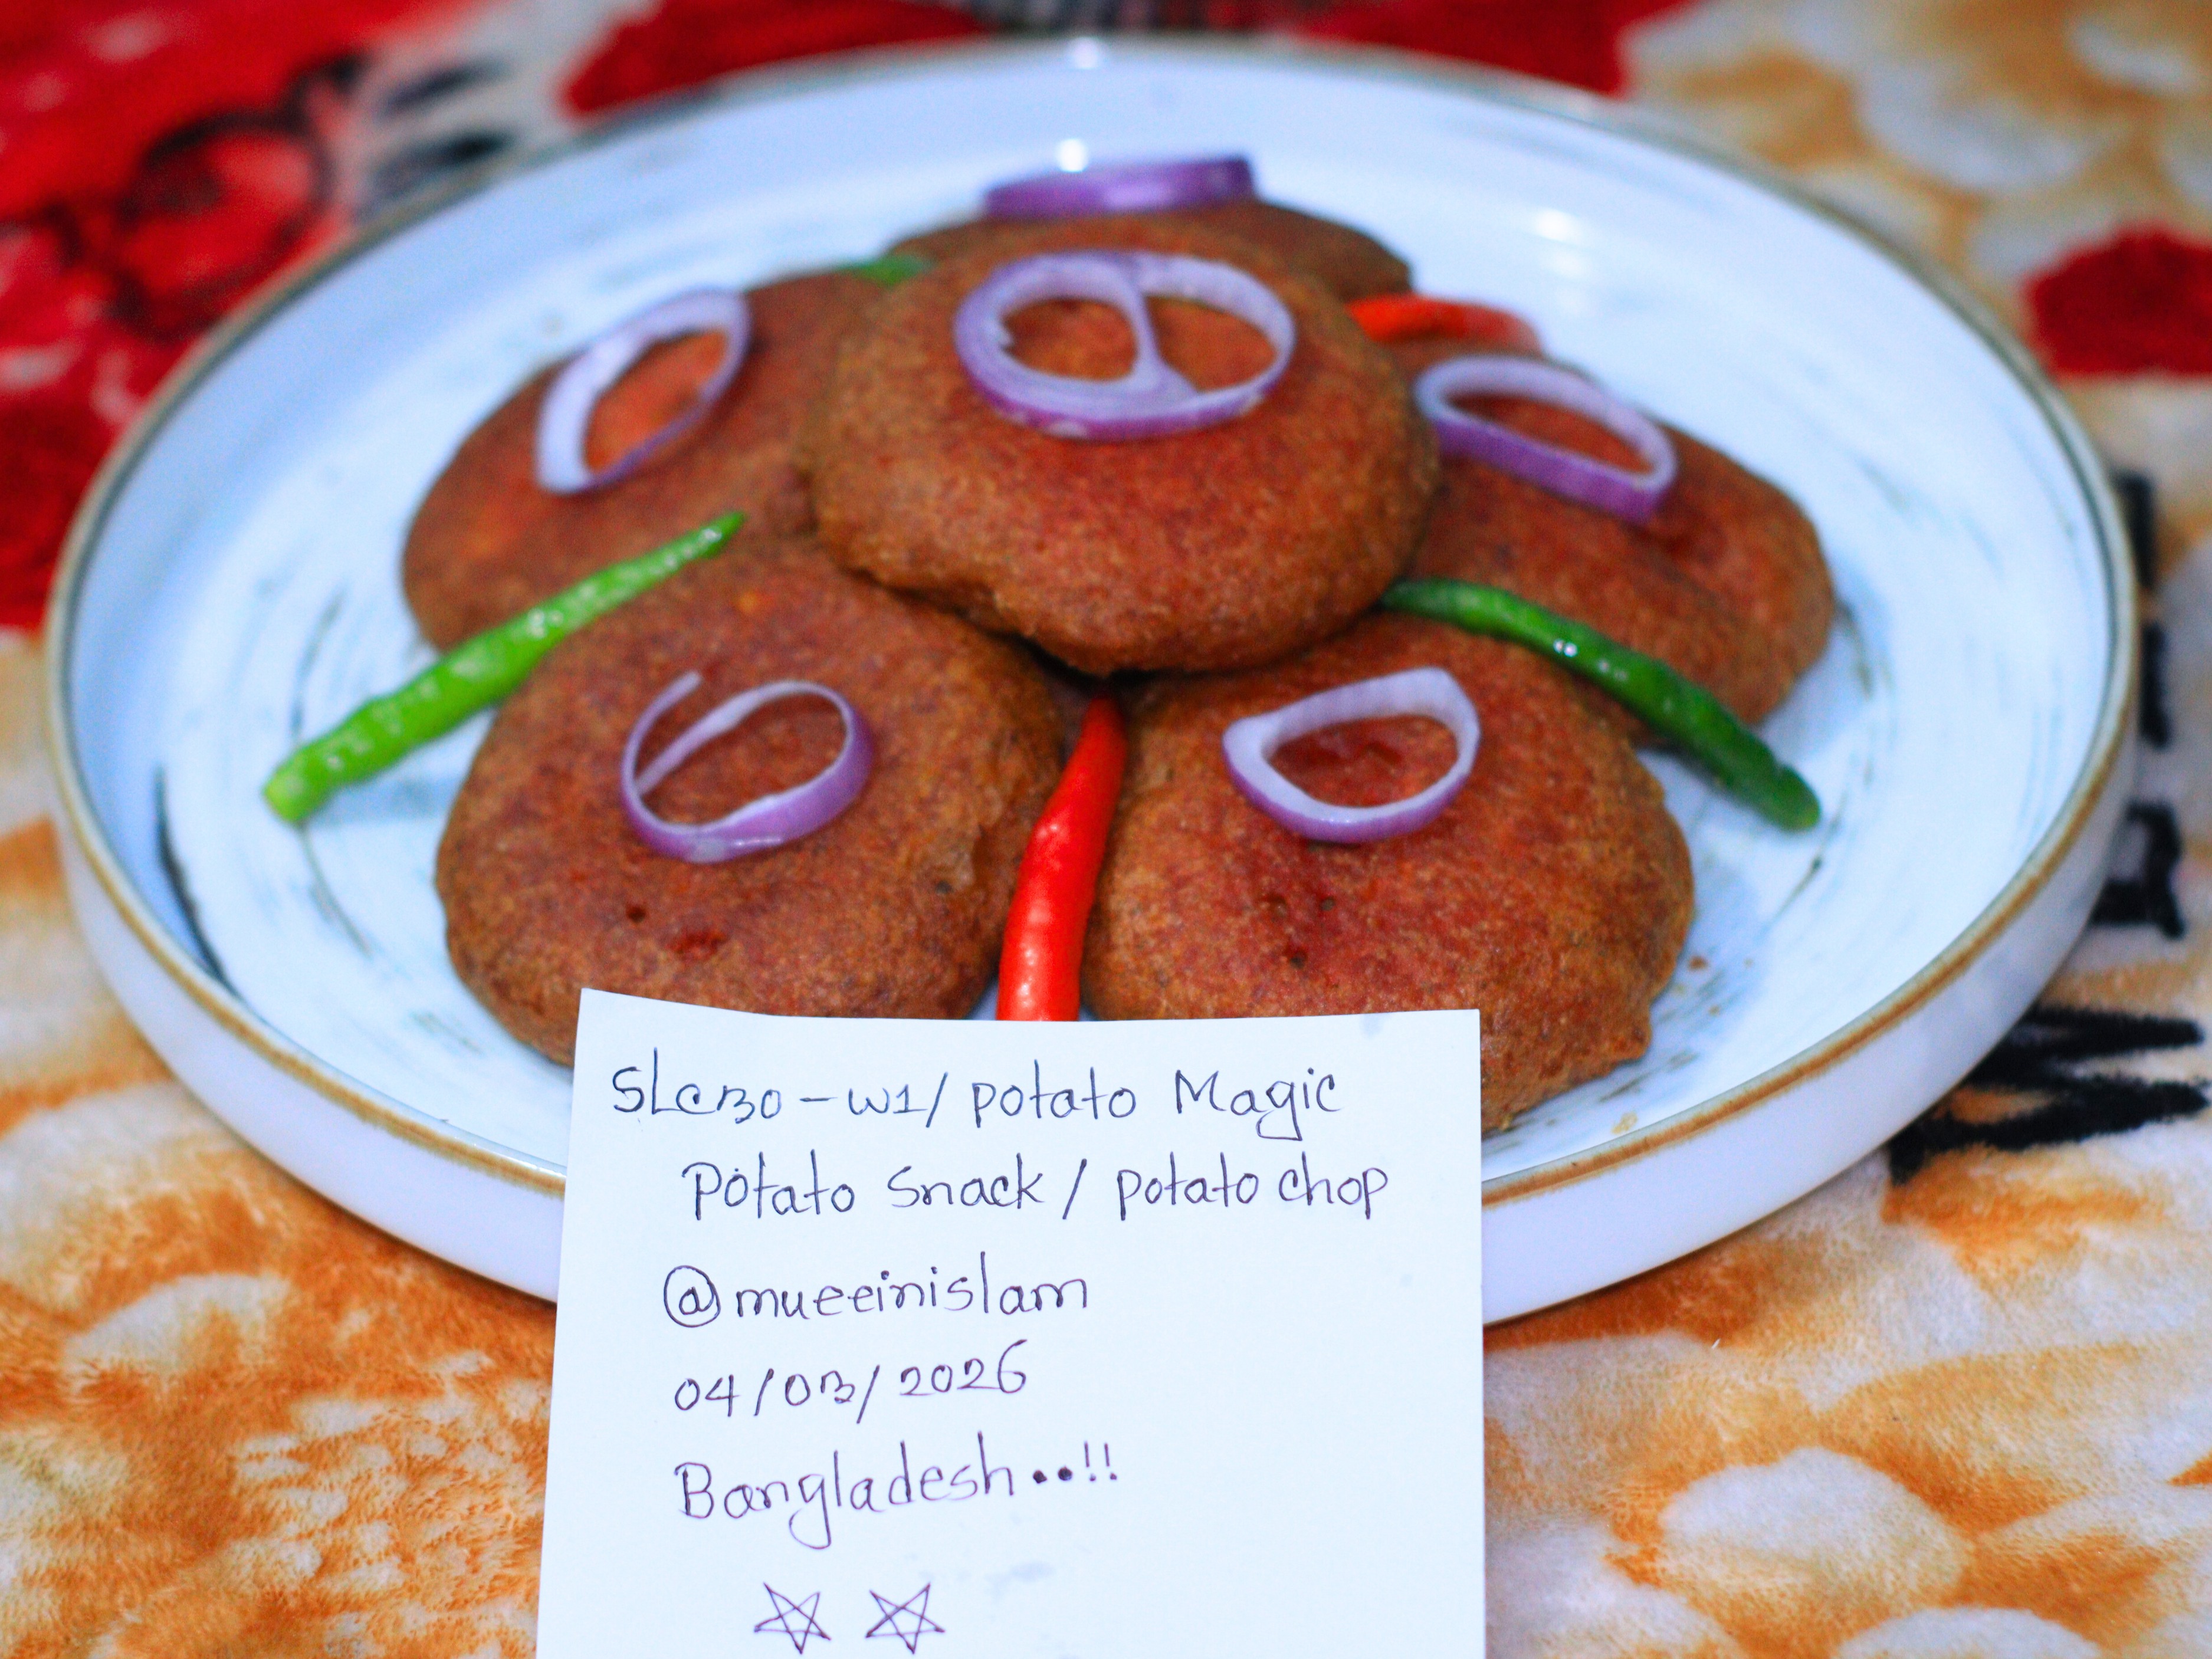 SLC30-W1/ potato Magic
Potato Snack / potato chop
@mueeinislam
04/03/2026
Bangladesh..!!